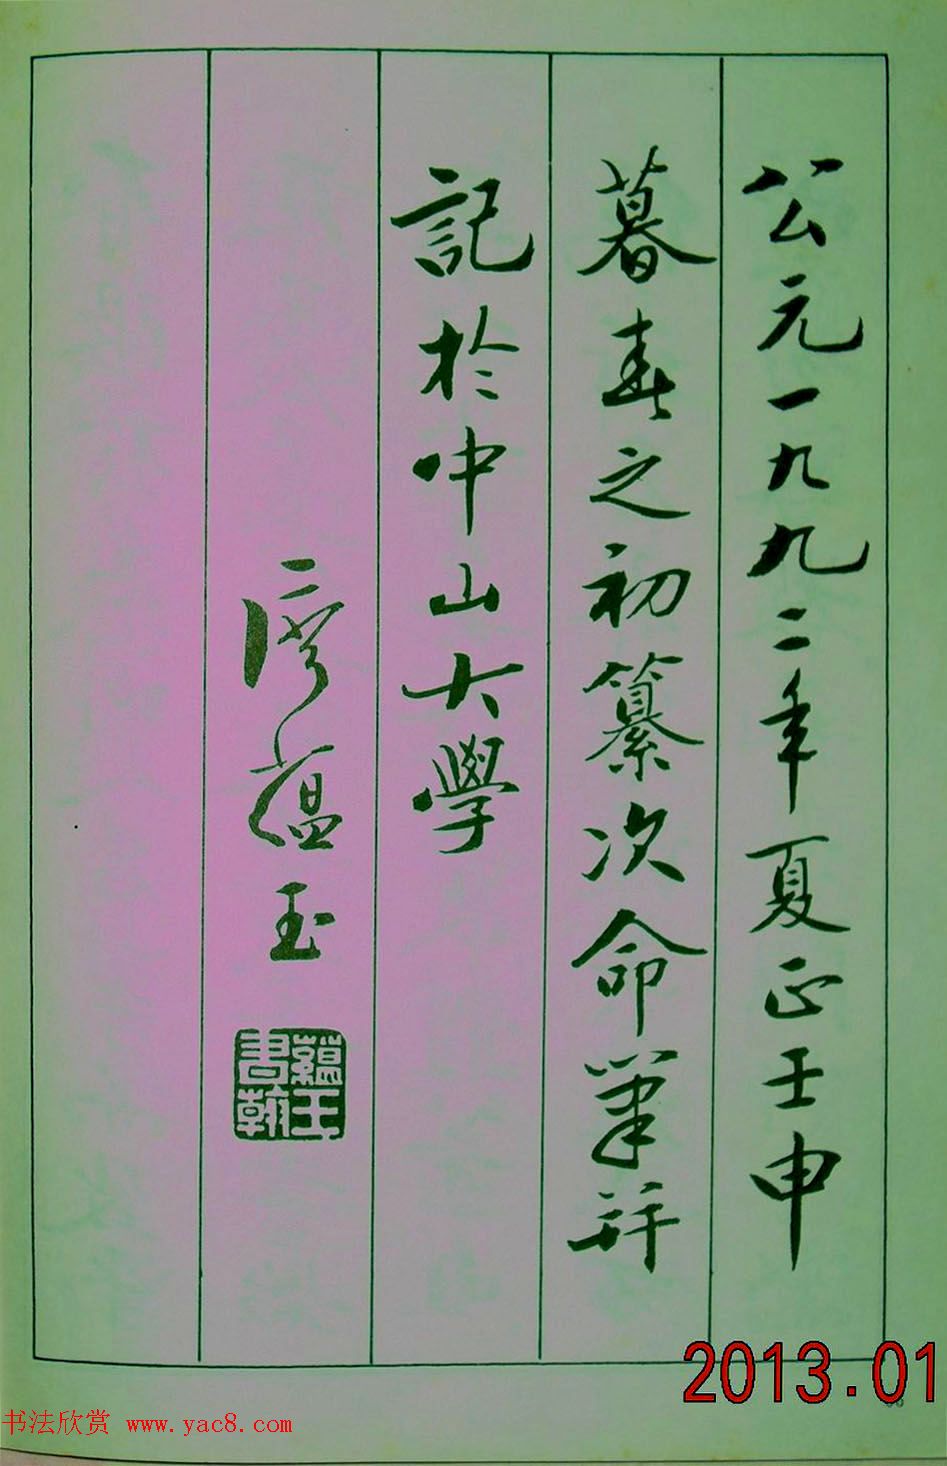 公元一九九二年夏正壬申
暮春之初纂次命筆并
記於中山大學
廖蘊玉
蘊玉書翰
2013.01
书法欣赏 www.yac8.com